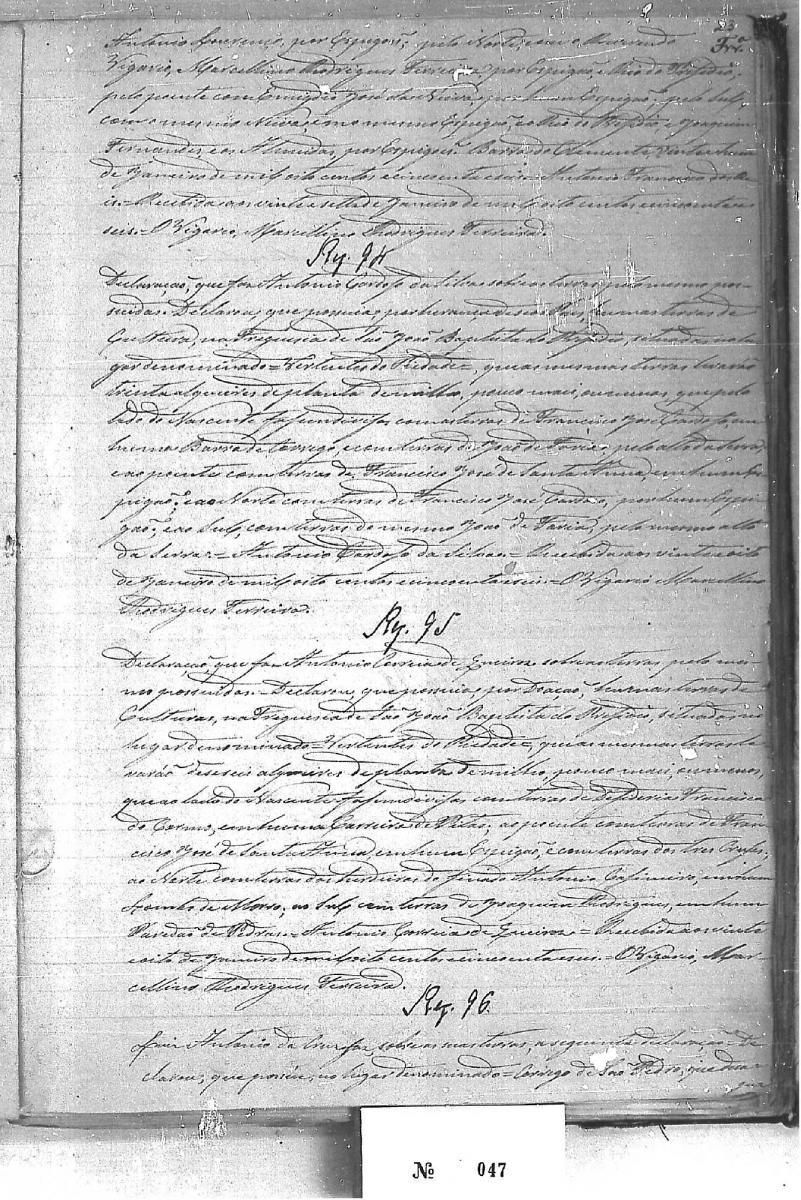 23
Antonio Lourenço, por Espigoẽs; pelo Norte, com o Reverendo
Vigario, Marcellino Rodrigues Ferreira, por Espigaõ e Rio do Prefidio;
pelo poente com José da Neiva, por hum Espigaõ; pelo Sul,
com o mesmo Neiva, no mesmo Espigaõ, e Rio do Prefidio, e Joaquim
Fernandes, e os Almeidas, por Espigoẽs. Barra do Clemente, vinte
de Janeiro de mil oito centos e cincoenta e seis. Antonio Francisco dos Re-
is.= Recebida aos vinte e sette de Janeiro de mil oito centos e cincoenta e
seis.= O Vigario, Marcellino Rodrigues Ferreira.
Rg. 94
Declaraçaõ, que faz Antonio Cardoso da Silva sobre as terras pelo mesmo pos-
suidas. Declarou, que possuia, por herança de seus Pais, humas terras de
Cultura, na Freguesia de Saõ Joaõ Baptista do Prefidio, situadas no lu-
gar denominado = Vertentes do Piedade=, que as mesmas terras levaráõ
trinta alqueires de planta de milho, pouco mais, ou menos, que pelo
lado do Nascente fas em divisas com as terras de Francisco José Cardoso, em
huma Barra de Corrego, e com terras de Joaõ de Faria, pelo alto da Serra,
e ao poente com terras de Francisco José de Santa Anna, em hum Es-
pigaõ; e ao Norte com terras de Francisco José Cardoso, por hum Espi-
gaõ; e ao Sul, com terras do mesmo Joaõ de Faria, pelo mesmo alto
da Serra.= Antonio Cardoso da Silva.= Recebida aos vinte e oito
de Janeiro de mil oito centos e cincoenta e seis.= O Vigario Marcellino
Rodrigues Ferreira.
Rg. 95
Declaraçaõ, que faz Antonio Correia de sobre as terras pelo mes-
mo possuidas.= Declarou, que possuia, por Doaçaõ, humas terras de
Culturas, na Freguesia de Saõ Joaõ Baptista do Prefidio, situadas no
lugar denominado = Vertentes do Piedade=, que as mesmas terras le-
varáõ deseseis alqueires de planta de milho, pouco mais, ou menos,
que ao lado do Nascente fas em divisas com terras de Francisca
do Carmo, em huma; ao poente com terras de Fran-
cisco José de Santa Anna, em hum Espigaõ, e com terras dos tres
ao Norte com terras dos herdeiros do finado Antonio, em hum
de Morro, ao Sul com terras de Joaquim Rodrigues, em hum
Paredaõ de Pedras.= Antonio Correia de = Recebida aos vinte
e oito de Janeiro de mil oito centos e cincoenta e seis.= O Vigario, Mar-
cellino Rodrigues Ferreira.
Rg. 96.
Antonio da Cruz faz, sobre as suas terras, a seguinte declaraçaõ= De-
clarou, que possúe, no lugar denominado = Corrego de Saõ Pedro, que
Nº 047